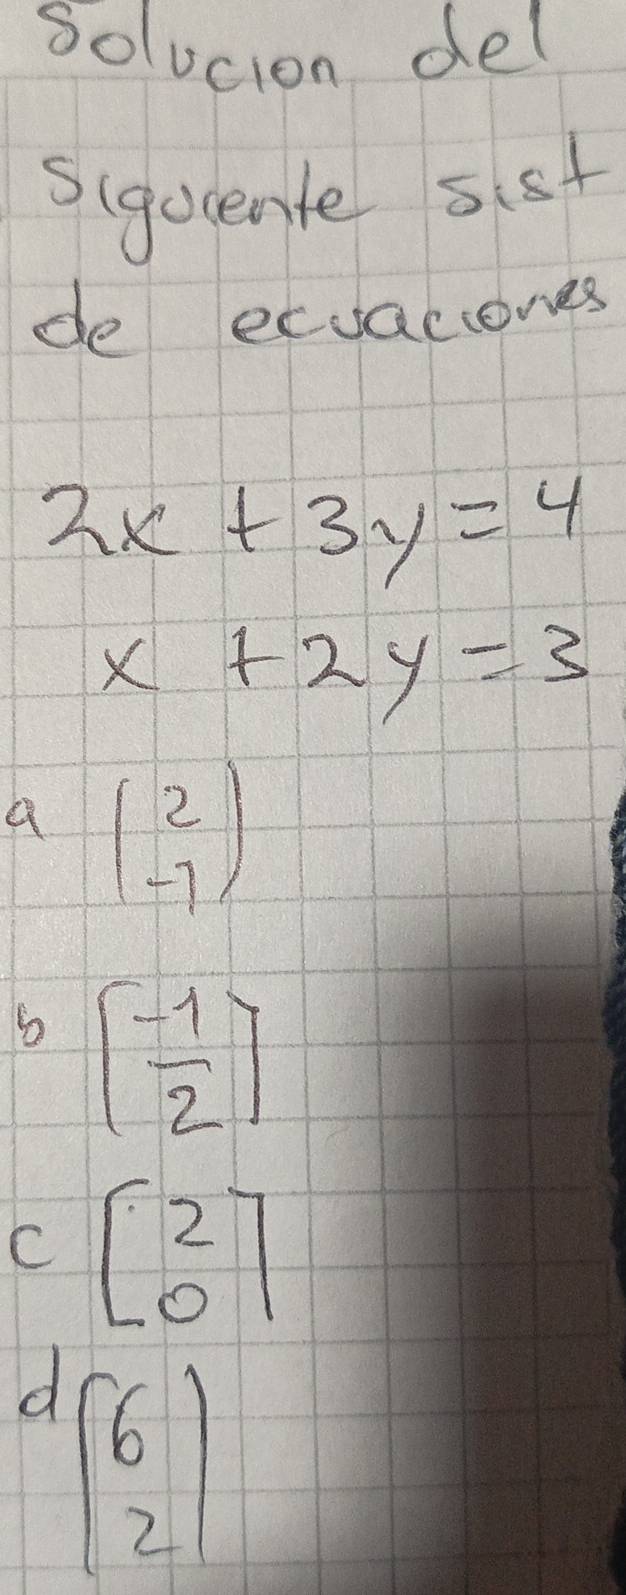 Solucion del
siguiente sist
de ecuaciones
2x + 3y = 4
x + 2y = 3
a (2
-1)
b [-1
2]
c [2
0]
d (6
2)